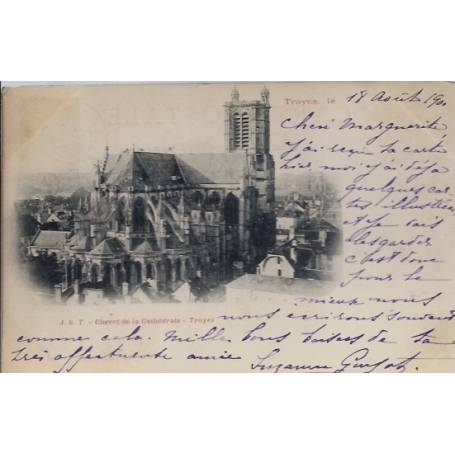 Troyes, le 18 Août 190
Chère Marguerite,
j'ai reçu ta carte
hier moi j'ai déja
quelques car
tes illustrées
et je vais
les garder
c'est donc
pour le
mieux nous
J. S. T. - Chevet de la Cathédrale - Troyes
nous ecrirons souvent
comme cela. Mille bons baisers de ta
très affectueuse amie Suzanne